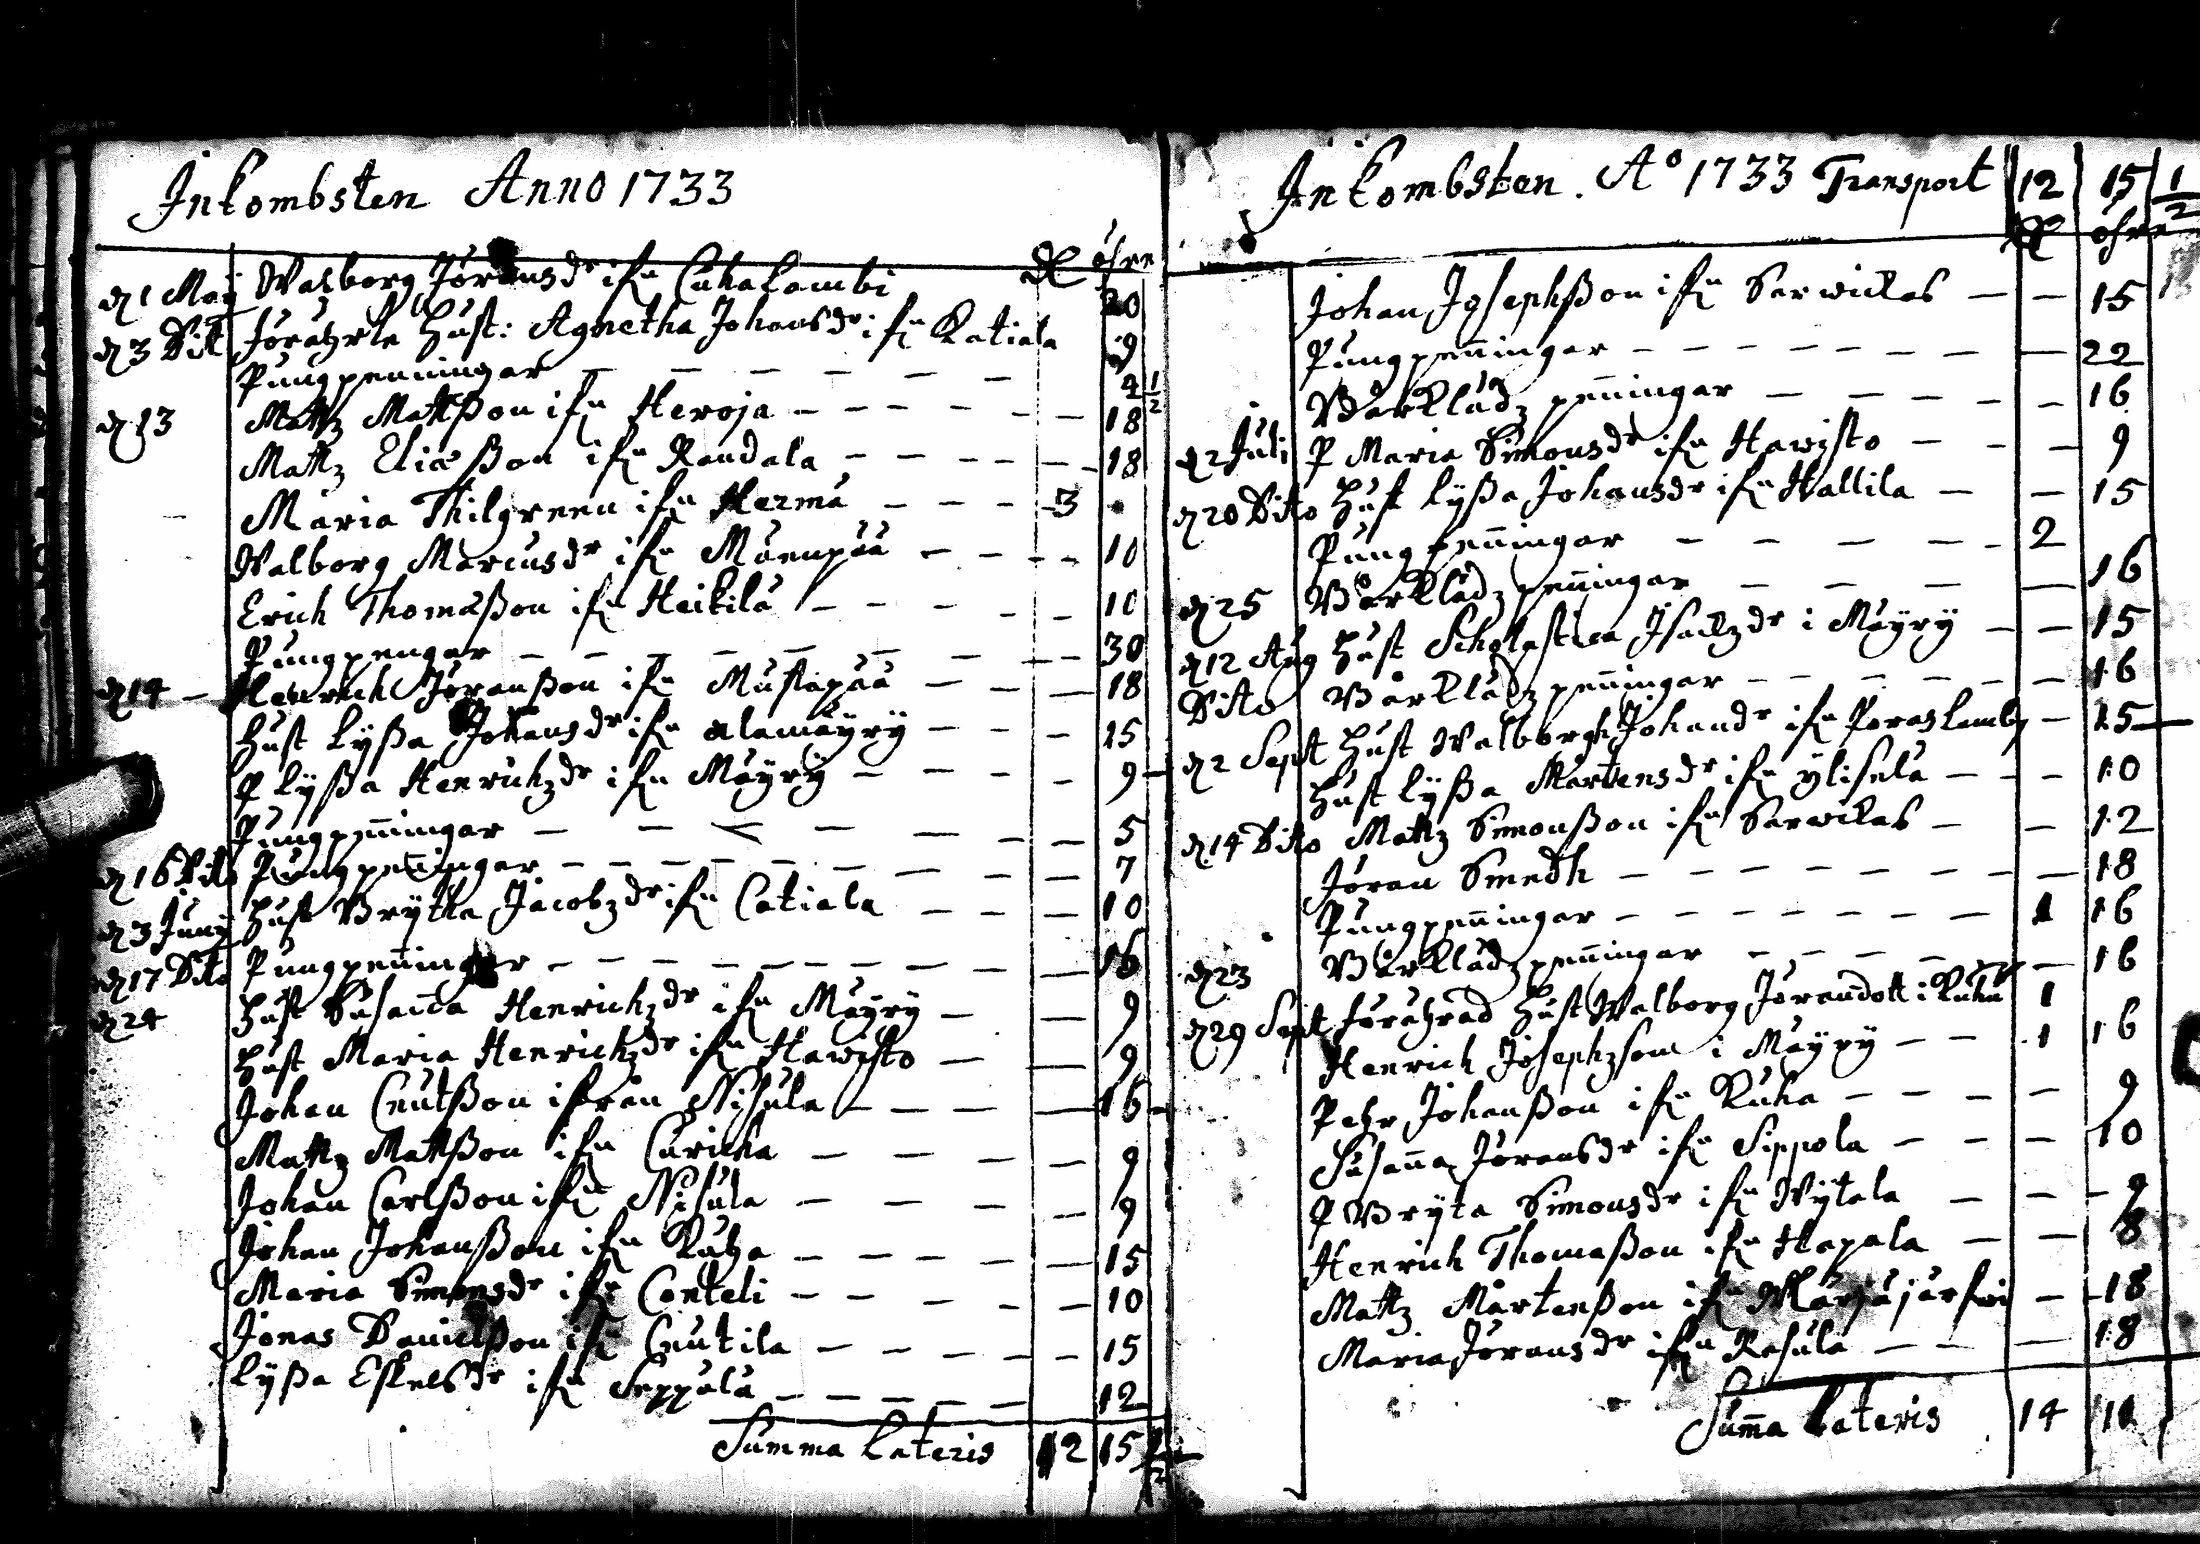 Inkombsten Anno 1733
Dl öhre
d 1 Maij Walborg Jöransdr ifrn Cuhalambi 20
d 3 Dit förährte Hust: Agnetha Johansdr ifrn Katiala 9
Pungpenningar 4 1/2
d 13 Mattz Mattßon ifrn Heroja 18
Mattz Eliæßon ifrn Randala 18
Maria Thilgreen ifrn Hermä 3
Walborg Marcusdr ifrn Mäenpää 10
Erich Thomæßon ifrn Heikilä 10
Pungpengar 30
d 14 Henrich Jöranßon ifrn Mustapää 18
Hust Lyßa Johansdr ifrn alamäyrÿ 15
P Lyßa Henrichzdr ifrn Mäyrÿ 9
Pungpenningar 5
d 16 Dito Pungpenningar 7
d 3 Junij Hust Brÿtha Jacobzdr ifrn Catiala 10
d 17 Dito Pungpenningar 16
d 24 Hust Susanna Henrichzdr ifrn Mäyrÿ 9
Hust Maria Henrichzdr ifrn Hawisto 9
Johan Cnutßon ifrån Nisula 16
Mattz Mattßon ifrn Curicka 9
Johan Carlßon ifrn Nisula 9
Johan Johanßon ifrn Kuha 15
Maria Simonsdr ifrn Conteli 10
Jonas Danielßon ifrn Cnutila 15
Lyßa Eskelsdr ifrn Seppälä 12
Summa Lateris 12 15 1/2
Inkombsten. Ao 1733 Transport 12 15 1/2
Dl öhre
Johan Josephßon ifrn Sarwickas 15
Pungpenningar 22
Bårklädz penningar 16
d 2 Juli P Maria Simonsdr ifrn Hawisto 9
d 20 Dito Hust Lyßa Johansdr ifrn Hallila 15
Pungpenningar 2
d 25 Bårklädz penningar 16
d 12 Aug Hust Scholastica Isackzdr i Mäyrÿ 15
Dito Bårklädz penningar 16
d 2 Sept Hust Walborgh Johandr ifrn Poraslamby 15
Hust Lyßa Mårtensdr ifrn ÿlisela 10
d 14 Dito Mattz Simonßon ifrn Sarwickas 12
Jöran Smedh 18
Pungpenningar 1 16
d 23 Bårklädz penningar 16
d 29 Sept förährad Hust Walborg Jörandott i Kuha 1
Henrich Josephzson i Mäyry 1 16
Pehr Johanßon ifrn Kuha 9
Susanna Jöransdr ifrn Sippola 10
P Brÿta Simonsdr ifrn Wÿtala 9
Henrich Thomaßon ifrn Hapala 8
Mattz Mårtenßon ifrn Marjajärfwi 18
Maria Jöransdr ifrn Rasula 18
Summa Lateris 14 11